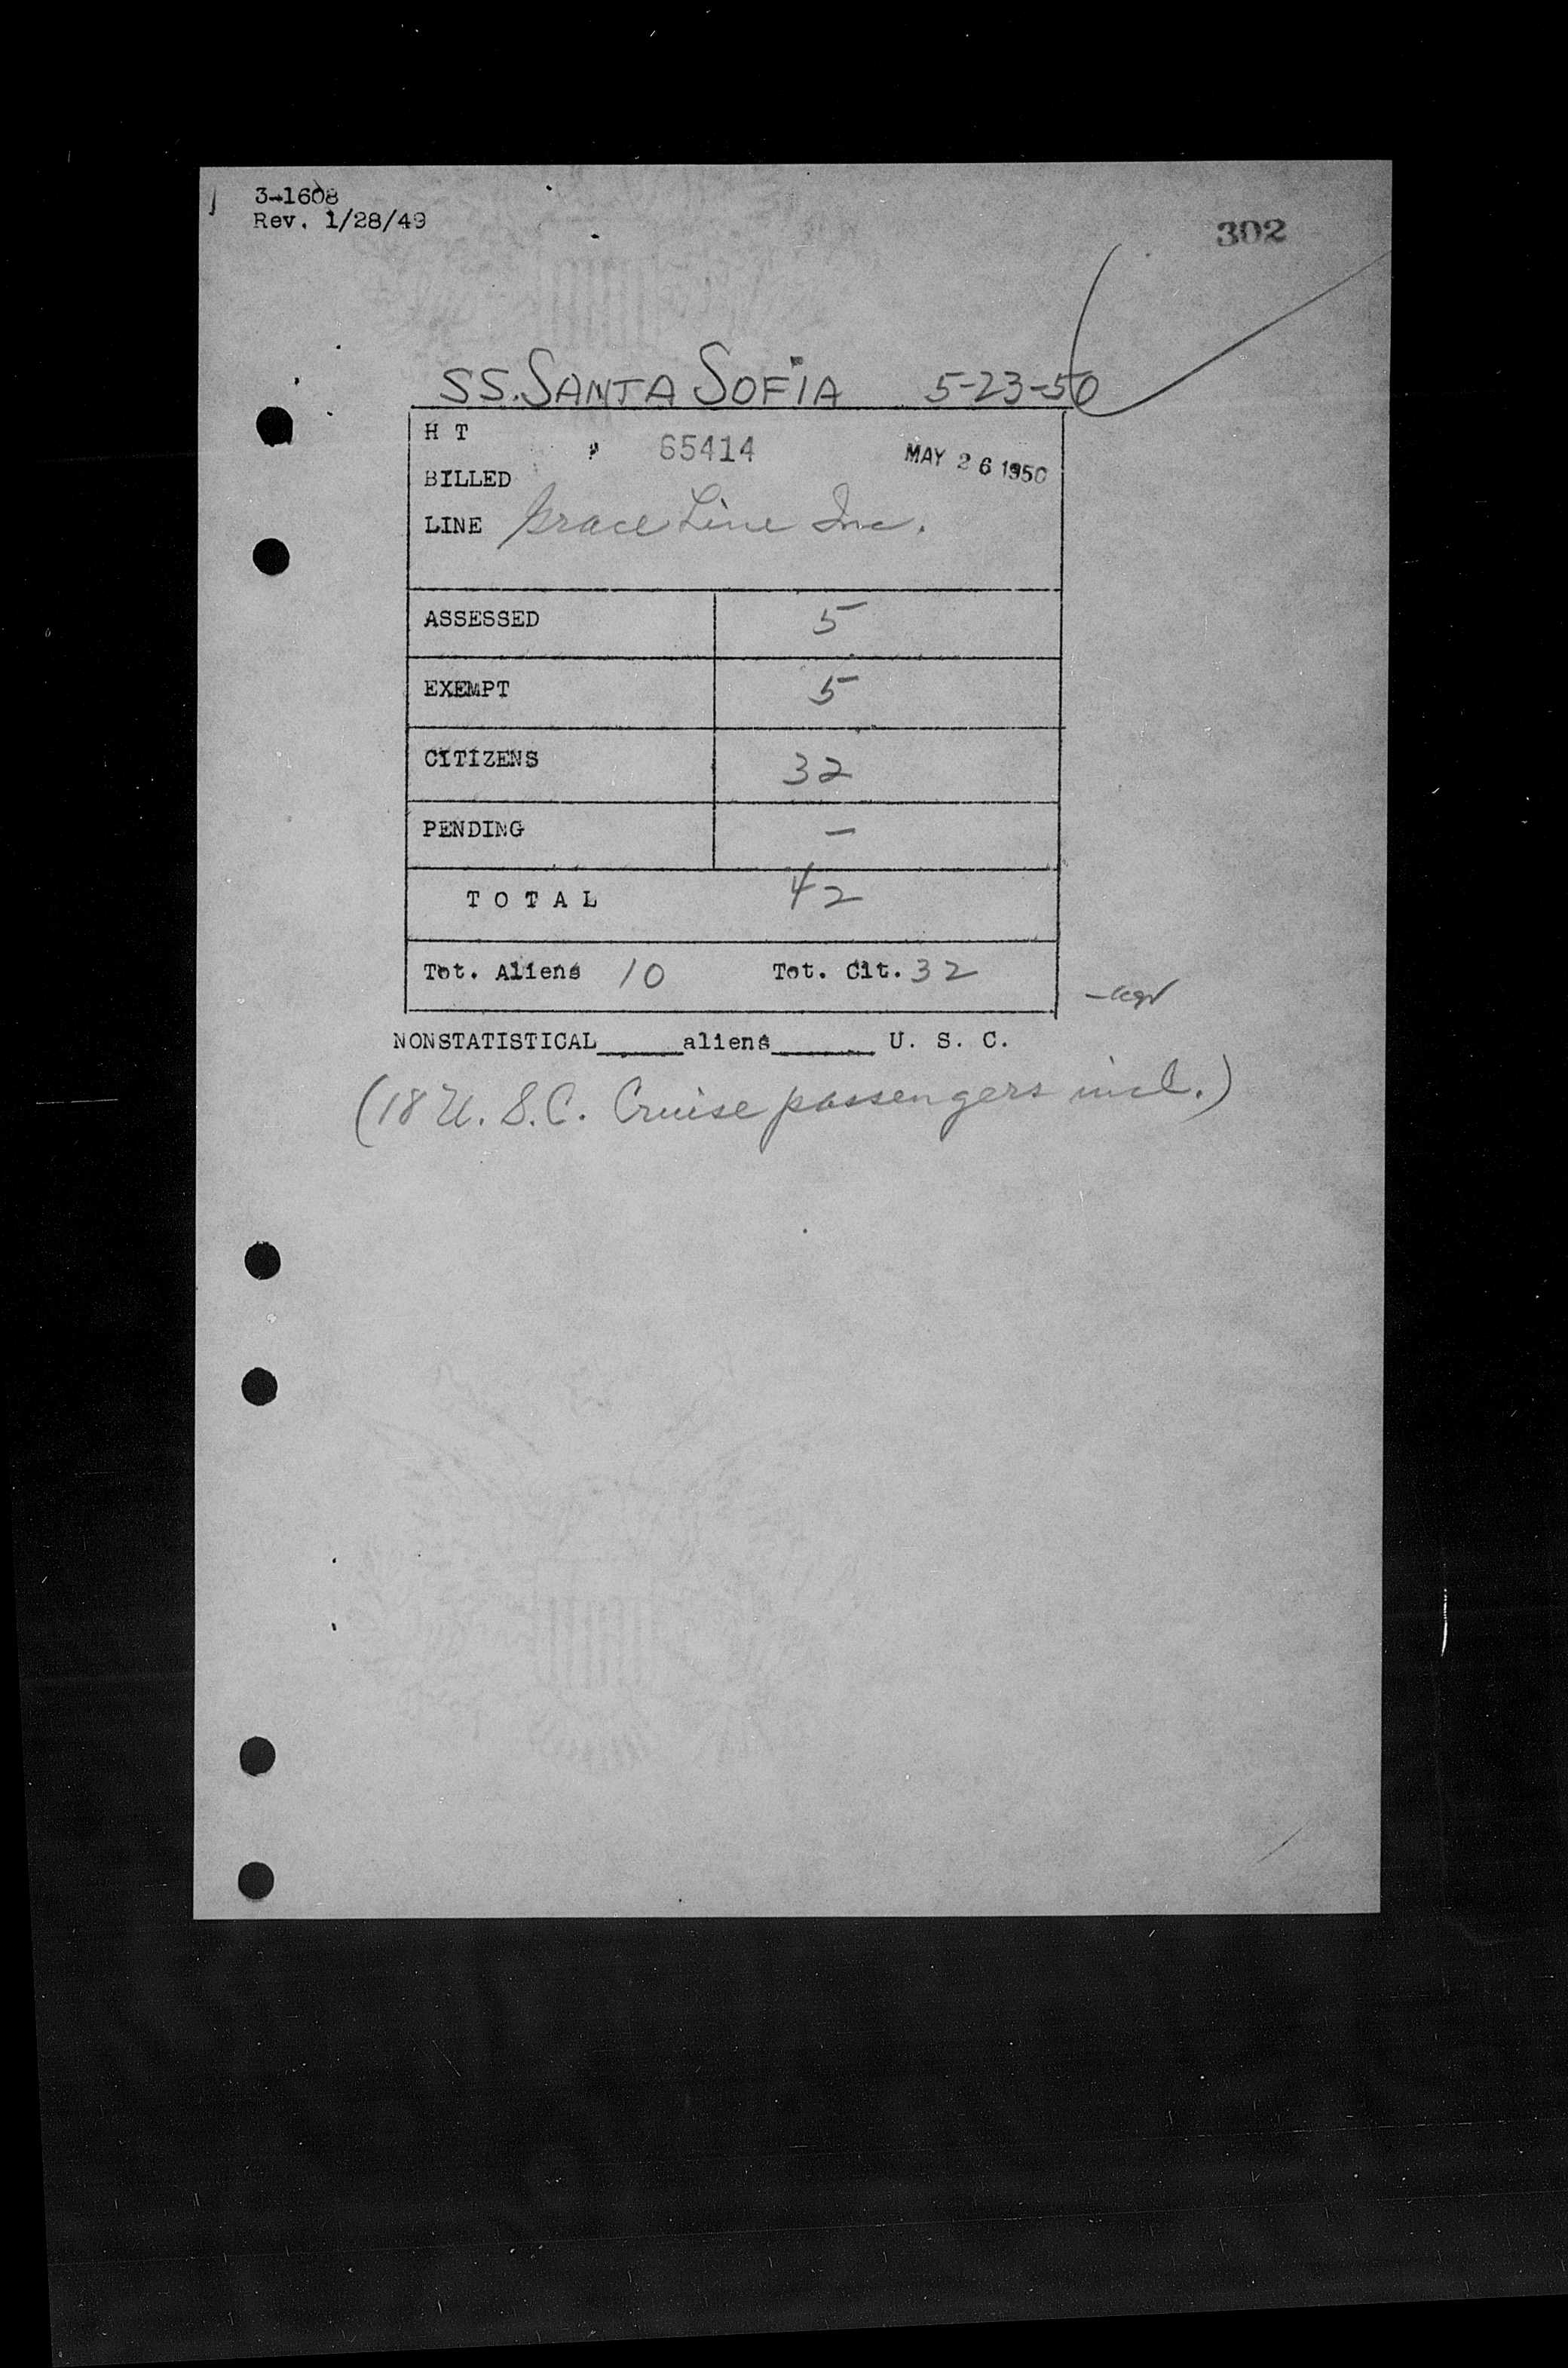 3-1608
Rev. 1/28/49
302
SS. SANTA SOFIA 5-23-50
H T
65414
MAY 26 1950
BILLED
LINE Grace Line Inc.
ASSESSED 5
EXEMPT 5
CITIZENS 32
PENDING —
T O T A L 42
Tot. Aliens 10 Tot. Cit. 32
NONSTATISTICAL_____aliens______ U. S. C.
(18 U. S. C. Cruise passengers incl.)